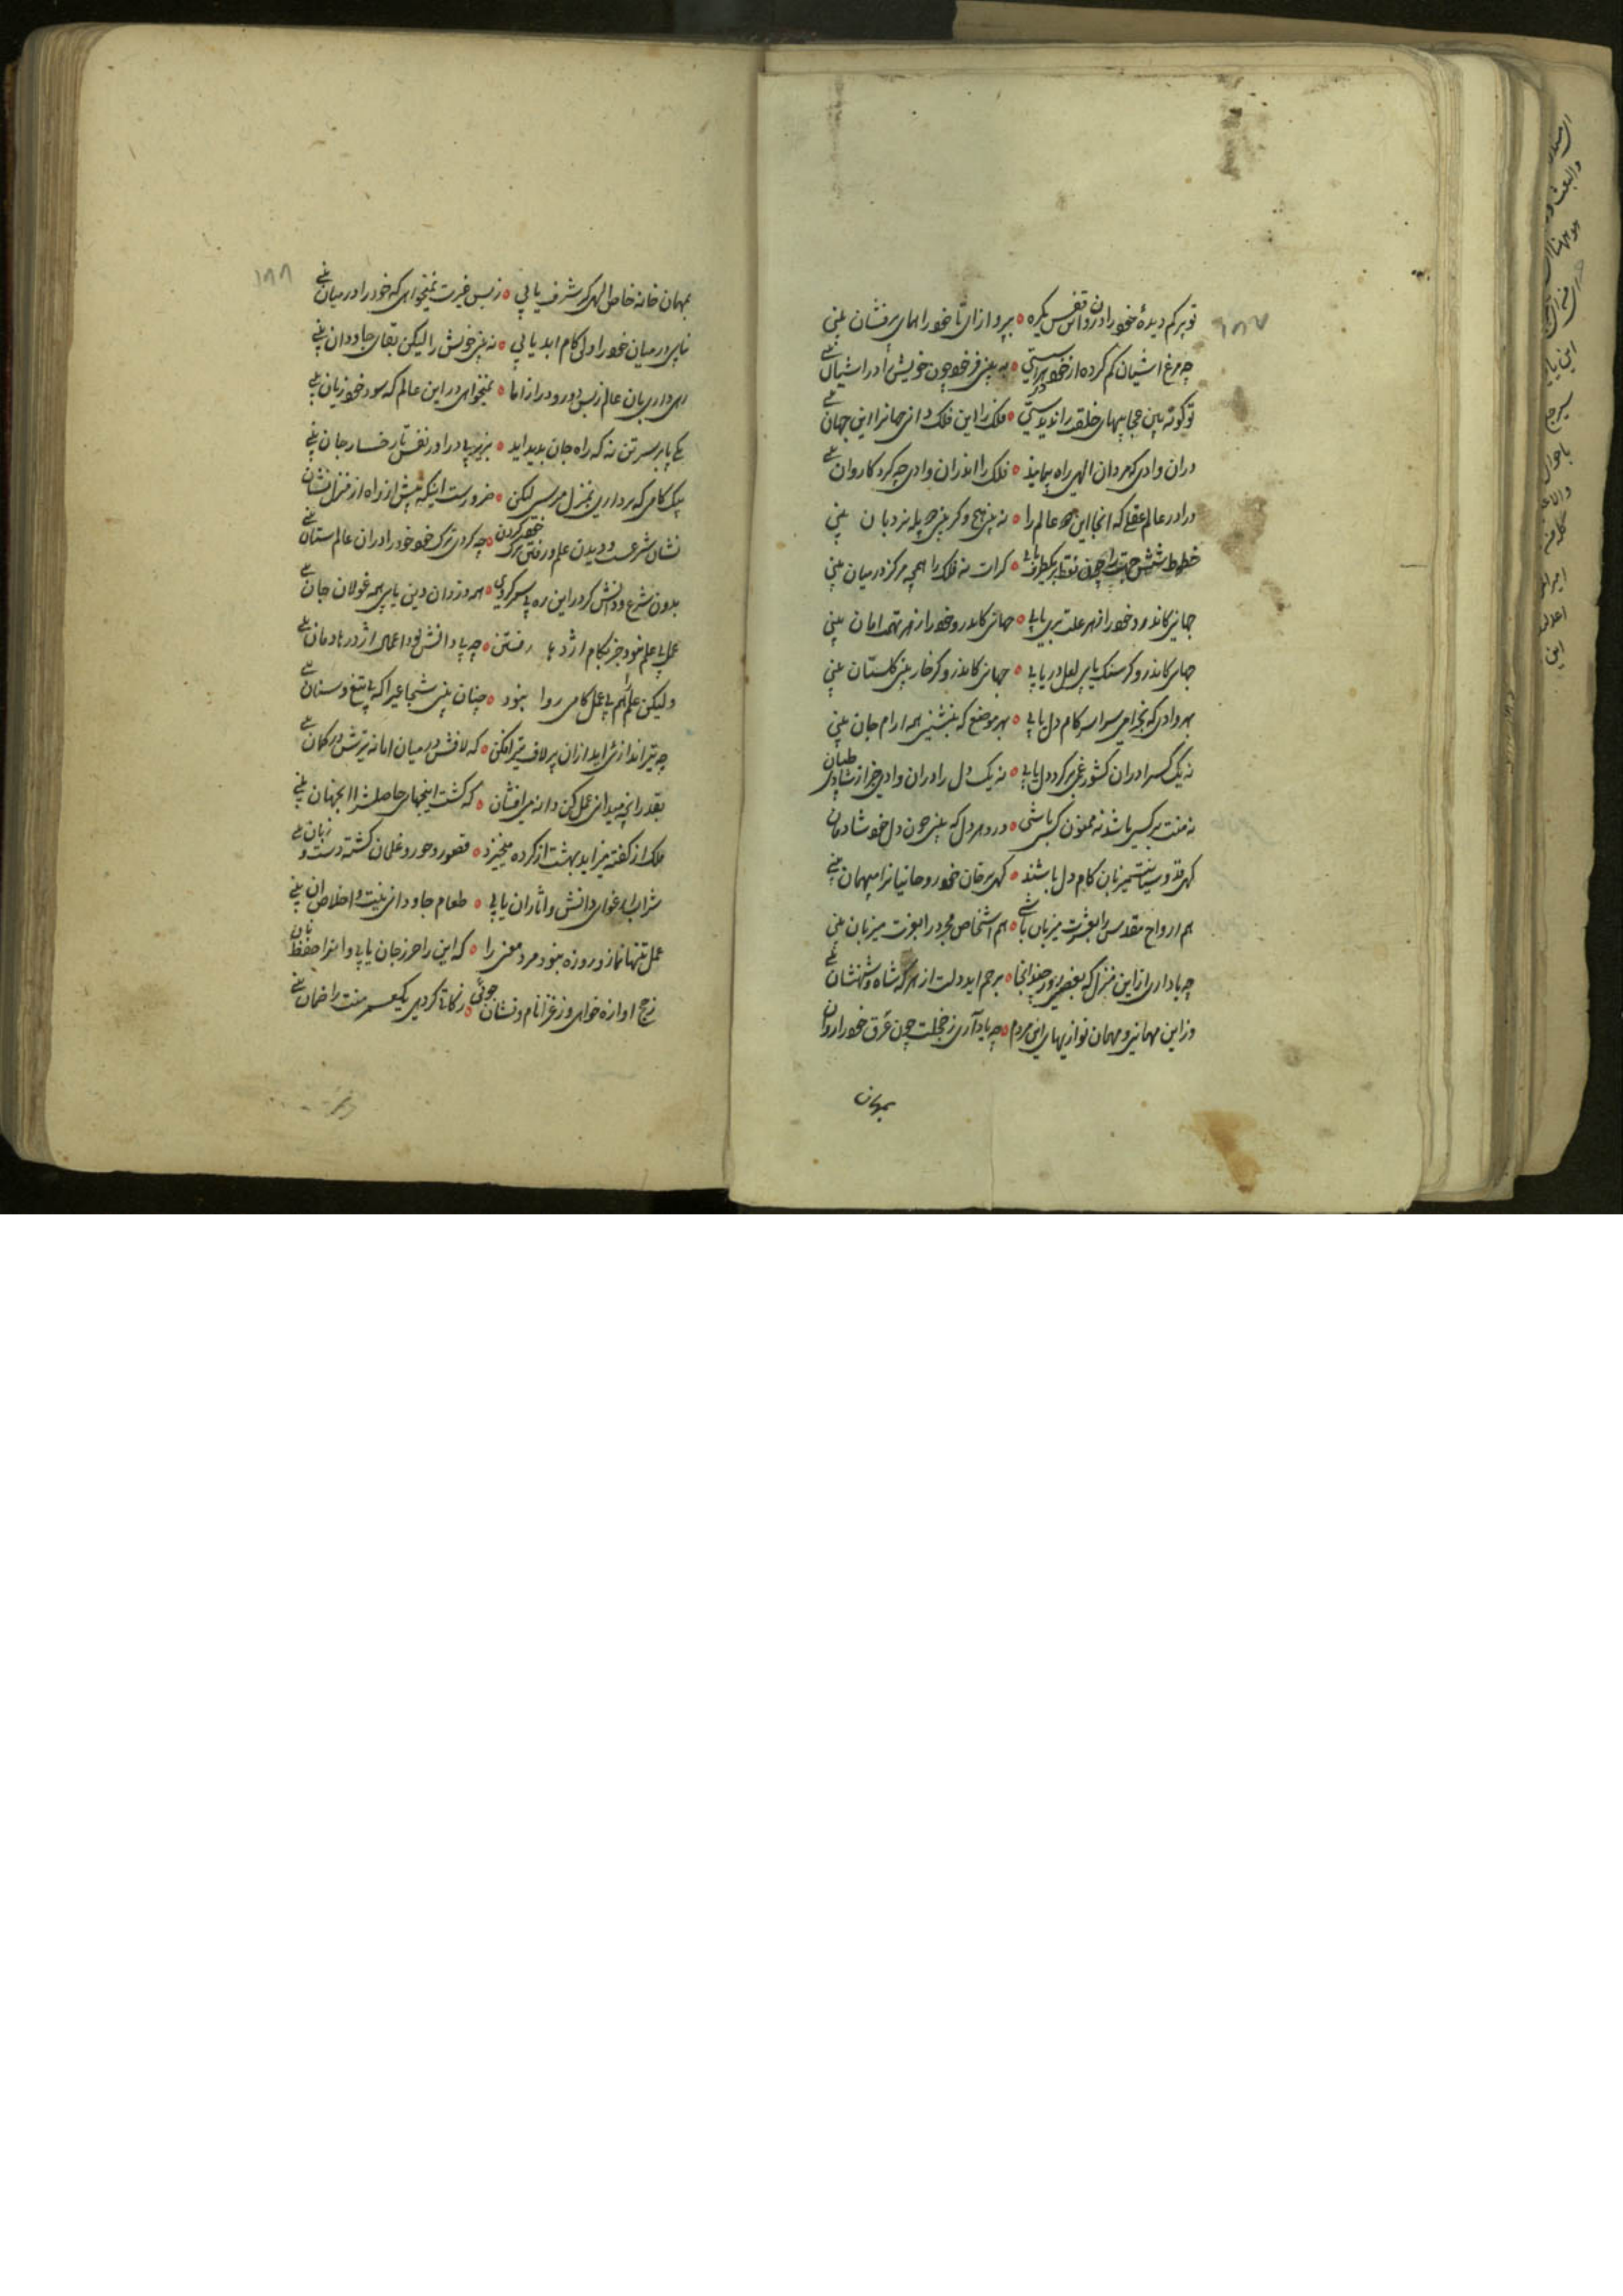 ۱۸۷
تو پرکم دیدهٔ خود را درون قفس یکره ○ بپرواز ای تا خود را همای پرفشان بینی
چه مرغ اشیان کم کرده از خود پرستی ○ به بینی فر خود چون خویش را در اشیان بینی
تو کوته بین عجایبهای خلقت را ندیدستی ○ فلک را این فلک دانی جهانرا این جهان بینی
دران وادی که مردان الهی راه پیمایند ○ فلک را اندران وادی چه کرد کاروان بینی
درا در عالم عقلی که انجا این همه عالم را ○ نه بینی هیچ و کر بینی چه پله نردبان بینی
خطوط شش جهت را چون نقط بر یکطرف یابی ○ کرات نه فلک را همچه مرکز در میان بینی
جهانی کاندرو خود را ز هر علت بری یابی ○ جهانی کاندرو خود را ز هر تهمت امان بینی
جهانی کاندرو کر سنک یابی لعل دریابی ○ جهانی کاندرو کر خار بینی کلستان بینی
بهر وادی که بخرامی سراسر کام دل یابی ○ بهر موضع که بنشینی همه ارام جان بینی
نه یک کس را دران کشور غمی بر کرد دل یابی ○ نه یک دل را دران وادی جز از شادی طپان بینی
نه منت بر کسی باشد نه ممنون کسی باشی ○ درو هر دل که بینی چون دل خود شادمان
کهی قدوسیانت میزبان کام دل باشند ○ کهی بر خان خود روحانیانرا میهمان بینی
هم ارواح مقدس را بعشرت میزبان باشی ○ هم اشخاص مجرد را بعزت میزبان بینی
چه یاد اری از این منزل که بعضی روز چند انجا ○ برحم اید دلت از هر که شاه و شهنشان بینی
وز این مهمانی و مهمان نوازیهای این مردم ○ چه یاد آری ز خجلت چون عرق خود را روان
بمهمان
۱۸۸
بمهمان خانه خاص الهی کر شرف یابی ○ ز بس غیرت نمیخواهی که خود را در میان بینی
نیابی در میان خود را ولی کام ابد یابی ○ نه بینی خویش را لیکن بقای جاودان بینی
رهی داری بان عالم ز بس دور و دراز اما ○ نمیخواهی در این عالم که سود خود زیان بینی
یکی پا بر سر تن نه که راه جان پدید اید ○ بزیر پی در اور نفس تا رخسار جان بینی
بیک کامی که برداری بمنزل میرسی لیکن ○ ضرورست اینکه پیش از راه از منزل نشان
نشان شرعست و دیدن علم و رفتن ترک خود کردن ○ چه کردی ترک خود خود را دران عالم ستان بینی
بدون شرع و دانش کر در این ره پی سپر کردی ○ همه دزدان دین یابی همه غولان جان بینی
عمل بی علم نبود جز بکام اژدها رفتن ○ چه با دانش بود اعمال اژدرها دمان بینی
ولیکن علم هم بی عمل کامی روا نبود ○ چنان بینی شجاعیرا که بی تیغ و سنان بینی
چه تیراندازی اید ازان پر لاف تیرافکن ○ که لافش در میان اما نه تیرش در کمان بینی
بقدر انچه میدانی عمل کن دانه می افشان ○ که کشت اینجهان حاصلش را انجهان بینی
ملک از کفته میزاید بهشت از کرده میخیزد ○ قصور و حور و غلمان کشته دست و زبان بینی
شراب ارغوانی دانش و اثار ان یابی ○ طعام جاودانی نیت و اخلاص ان بینی
عمل تنها نماز و روزه نبود مرد معنی را ○ که این را حرز جان یابی و انرا حفظ نان
ز حج اوازه خواهی وز غزا نام و نشان جوئی ○ زکاة ار دهی یکعمر منت را ضمان بینی